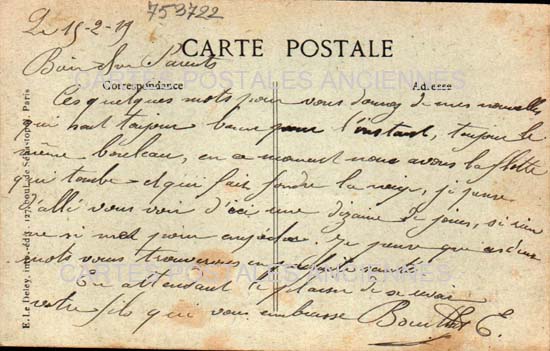 753722
Le 15-2-19
CARTE POSTALE
Bien cher Parents
CARTES POSTALES ANCIENNES
Correspondance
Adresse
Ces quelques mots pour vous donner de mes nouvelles
qui sont toujour bonne pour l'instant, toujour le
même bouleau, en ce moment nous avons la flotte
qui tombe et qui fait fondre la neige, je pense
d'allé vous voir d'ici une dizaine de jours, si rien
ne si met pour empécher. Je pense que
mots vous trouverons en parfaite santé
CARTES POSTALES ANCIENNES
En attendant le plaisir de se revoir
votre fils qui vous embrasse E.
E. Le Deley, imp.-éd., 127, boul. de Sébastopol, Paris